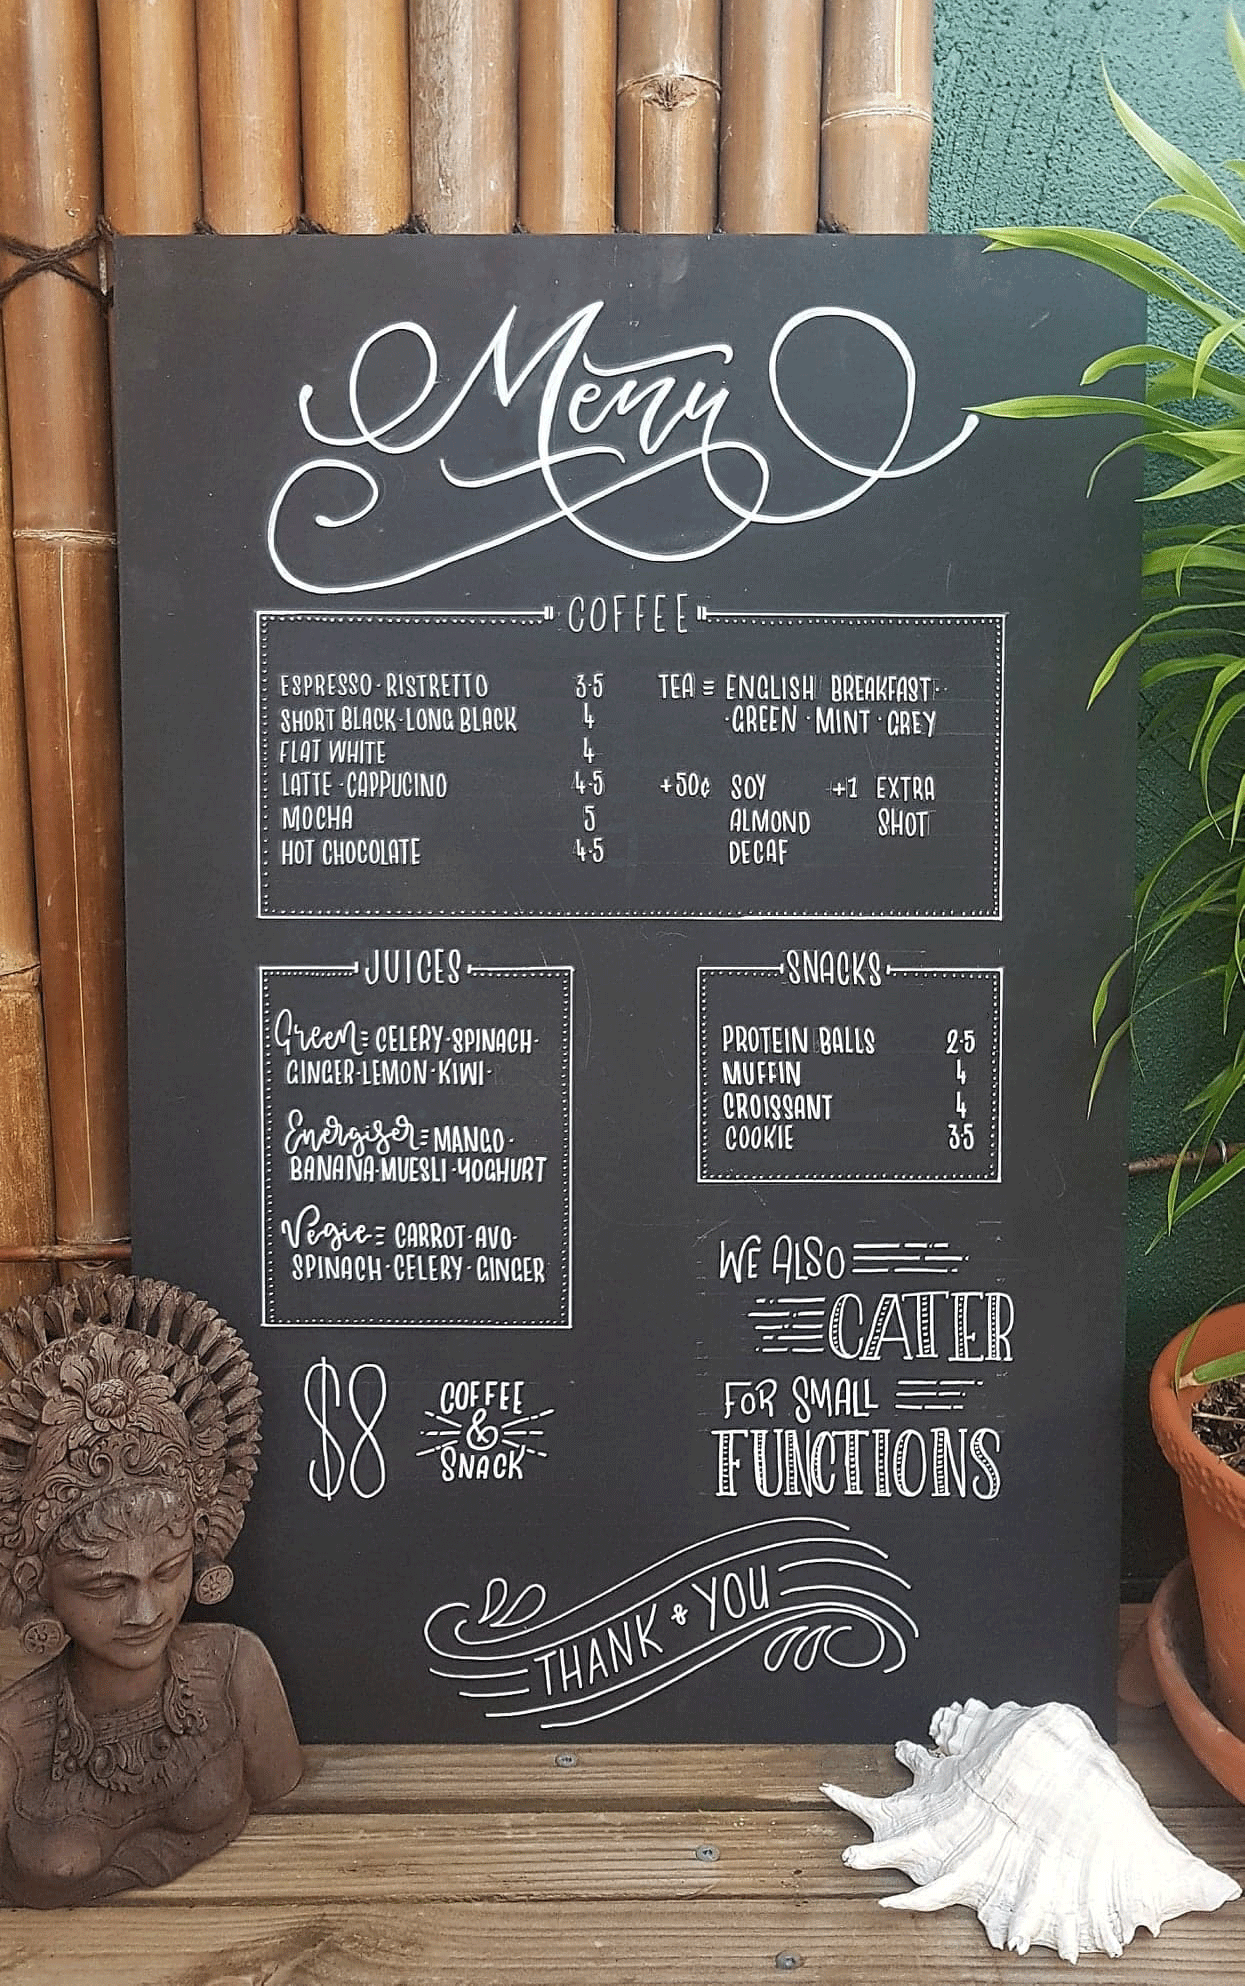 Menu
COFFEE
ESPRESSO·RISTRETTO 3·5
SHORT BLACK·LONG BLACK 4
FLAT WHITE 4
LATTE·CAPPUCINO 4·5
MOCHA 5
HOT CHOCOLATE 4·5
TEA ≡ ENGLISH BREAKFAST·
·GREEN·MINT·GREY
+50¢ SOY +1 EXTRA
ALMOND SHOT
DECAF
JUICES
Green ≡ CELERY·SPINACH·
GINGER·LEMON·KIWI·
Energiser ≡ MANGO·
BANANA·MUESLI·YOGHURT
Vegie ≡ CARROT·AVO·
SPINACH·CELERY·GINGER
SNACKS
PROTEIN BALLS 2·5
MUFFIN 4
CROISSANT 4
COOKIE 3·5
$8 COFFEE
&
SNACK
WE ALSO
CATER
FOR SMALL
FUNCTIONS
THANK & YOU